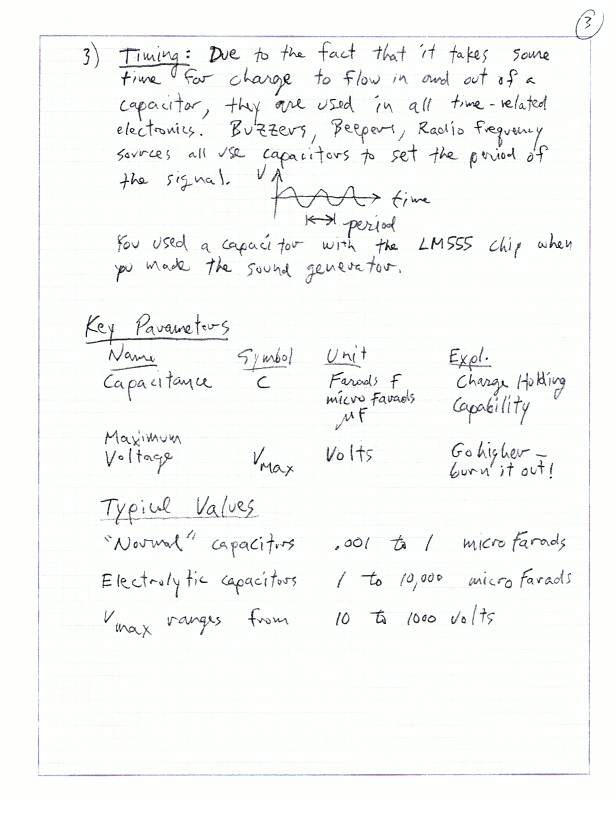 3
3) Timing: Due to the fact that it takes some
time for charge to flow in and out of a
capacitor, they are used in all time-related
electronics. Buzzers, Beepers, Radio frequency
sources all use capacitors to set the period of
the signal.
V
time
period
You used a capacitor with the LM555 chip when
you made the sound generator.
Key Parameters
Name Symbol Unit Expl.
Capacitance C Farads F Charge Holding
micro farads Capability
μF
Maximum
Voltage Vmax Volts Go higher –
burn it out!
Typical Values
"Normal" capacitors .001 to 1 micro farads
Electrolytic capacitors 1 to 10,000 micro farads
Vmax ranges from 10 to 1000 volts